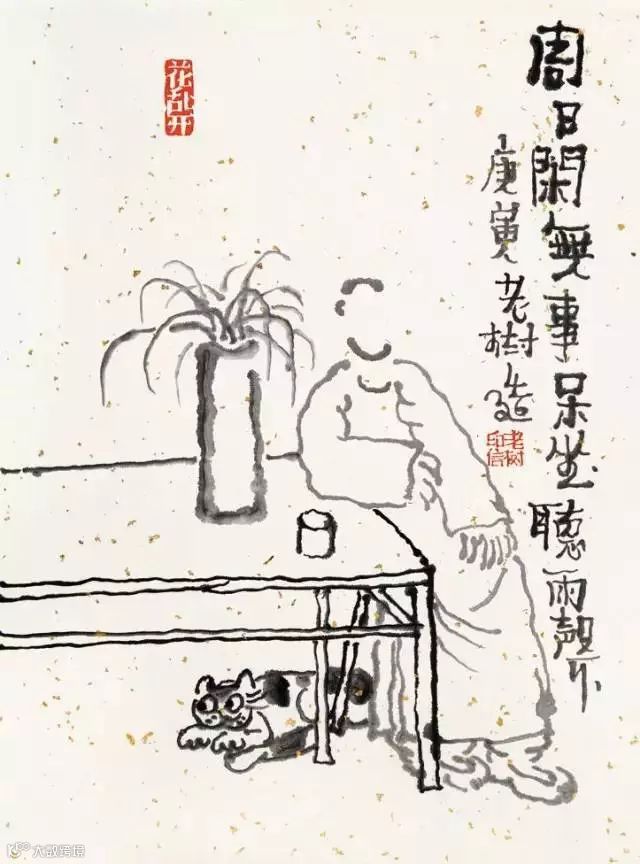 周日閑無事呆坐聽雨聲
庚寅老樹造
老树印信
花乱开
大数跨境